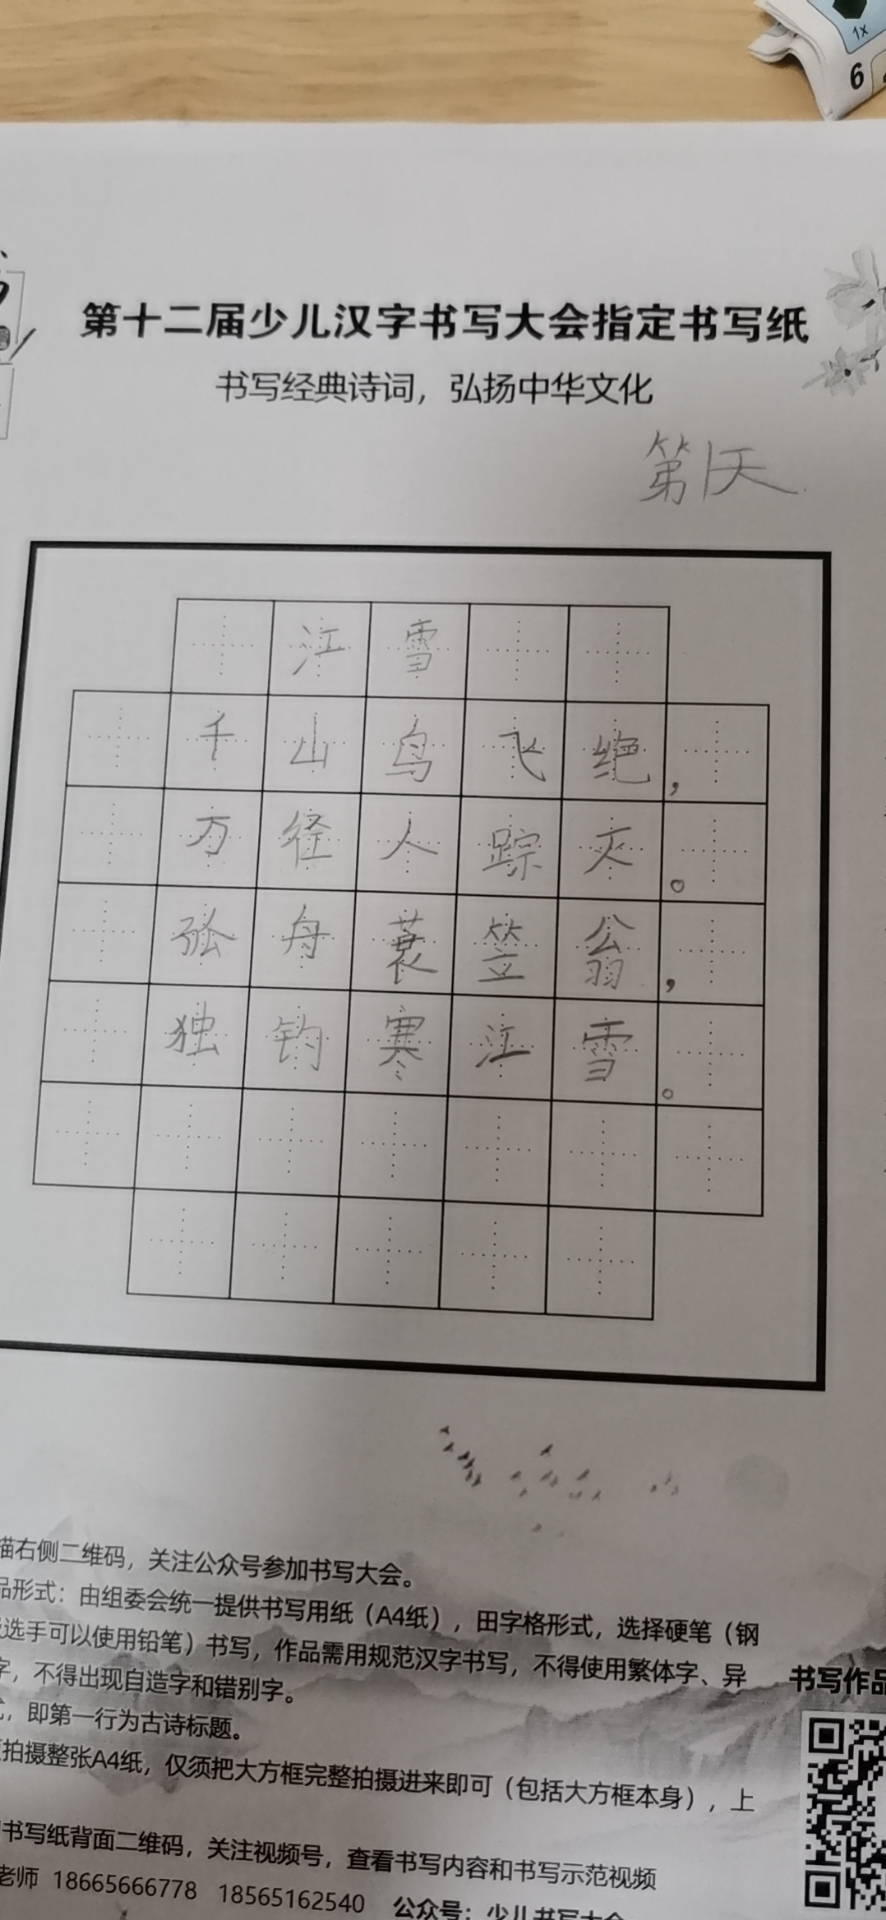 1x
6
第十二届少儿汉字书写大会指定书写纸
书写经典诗词，弘扬中华文化
第1天
江雪
千山鸟飞绝，
万径人踪灭。
孤舟蓑笠翁，
独钓寒江雪。
描右侧二维码，关注公众号参加书写大会。
品形式：由组委会统一提供书写用纸（A4纸），田字格形式，选择硬笔（钢
选手可以使用铅笔）书写，作品需用规范汉字书写，不得使用繁体字、异
字，不得出现自造字和错别字。
，即第一行为古诗标题。
拍摄整张A4纸，仅须把大方框完整拍摄进来即可（包括大方框本身），上
书写作品
书写纸背面二维码，关注视频号，查看书写内容和书写示范视频
老师 18665666778 18565162540 公众号：少儿书写大会